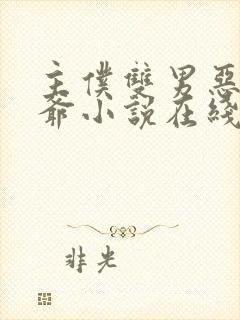 主僕雙男惡
爺小說在綫
非光